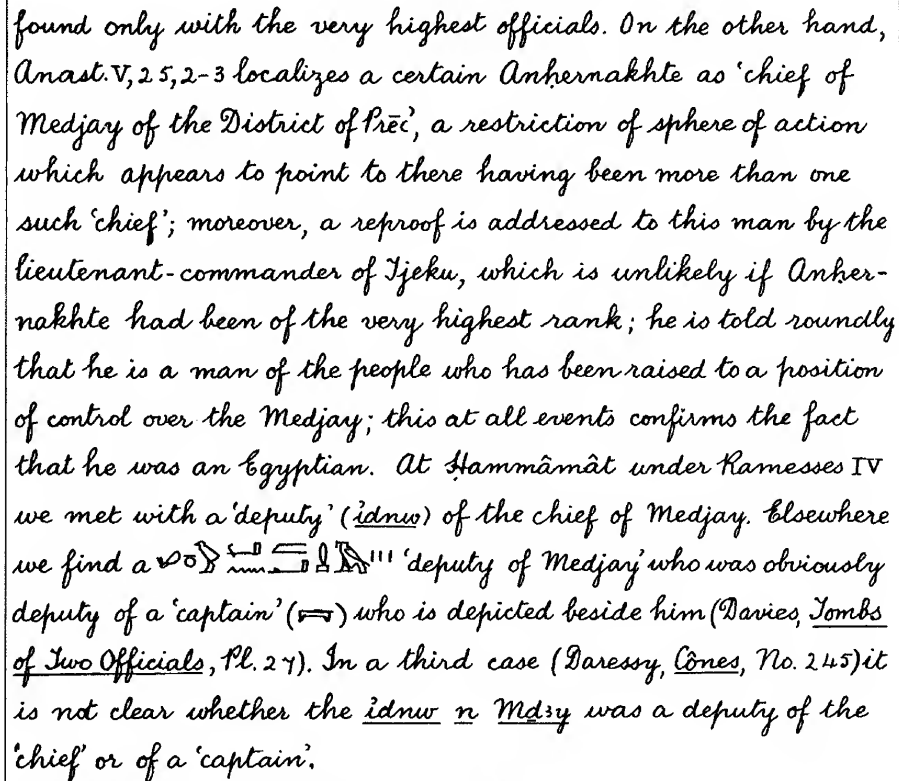 found only with the very highest officials. On the other hand,
Anast. V, 25, 2-3 localizes a certain Anḥernakhte as ‘chief of
Medjay of the District of Prēꜥ’, a restriction of sphere of action
which appears to point to there having been more than one
such ‘chief’; moreover, a reproof is addressed to this man by the
lieutenant-commander of Tjeku, which is unlikely if Anḥer-
nakhte had been of the very highest rank; he is told roundly
that he is a man of the people who has been raised to a position
of control over the Medjay; this at all events confirms the fact
that he was an Egyptian. At Ḥammâmât under Ramesses IV
we met with a ‘deputy’ (idnw) of the chief of Medjay. Elsewhere
we find a ‘deputy of Medjay’ who was obviously
deputy of a ‘captain’ () who is depicted beside him (Davies, Tombs
of Two Officials, Pl. 27). In a third case (Daressy, Cônes, No. 245) it
is not clear whether the idnw n Mḏꜣy was a deputy of the
‘chief’ or of a ‘captain’.